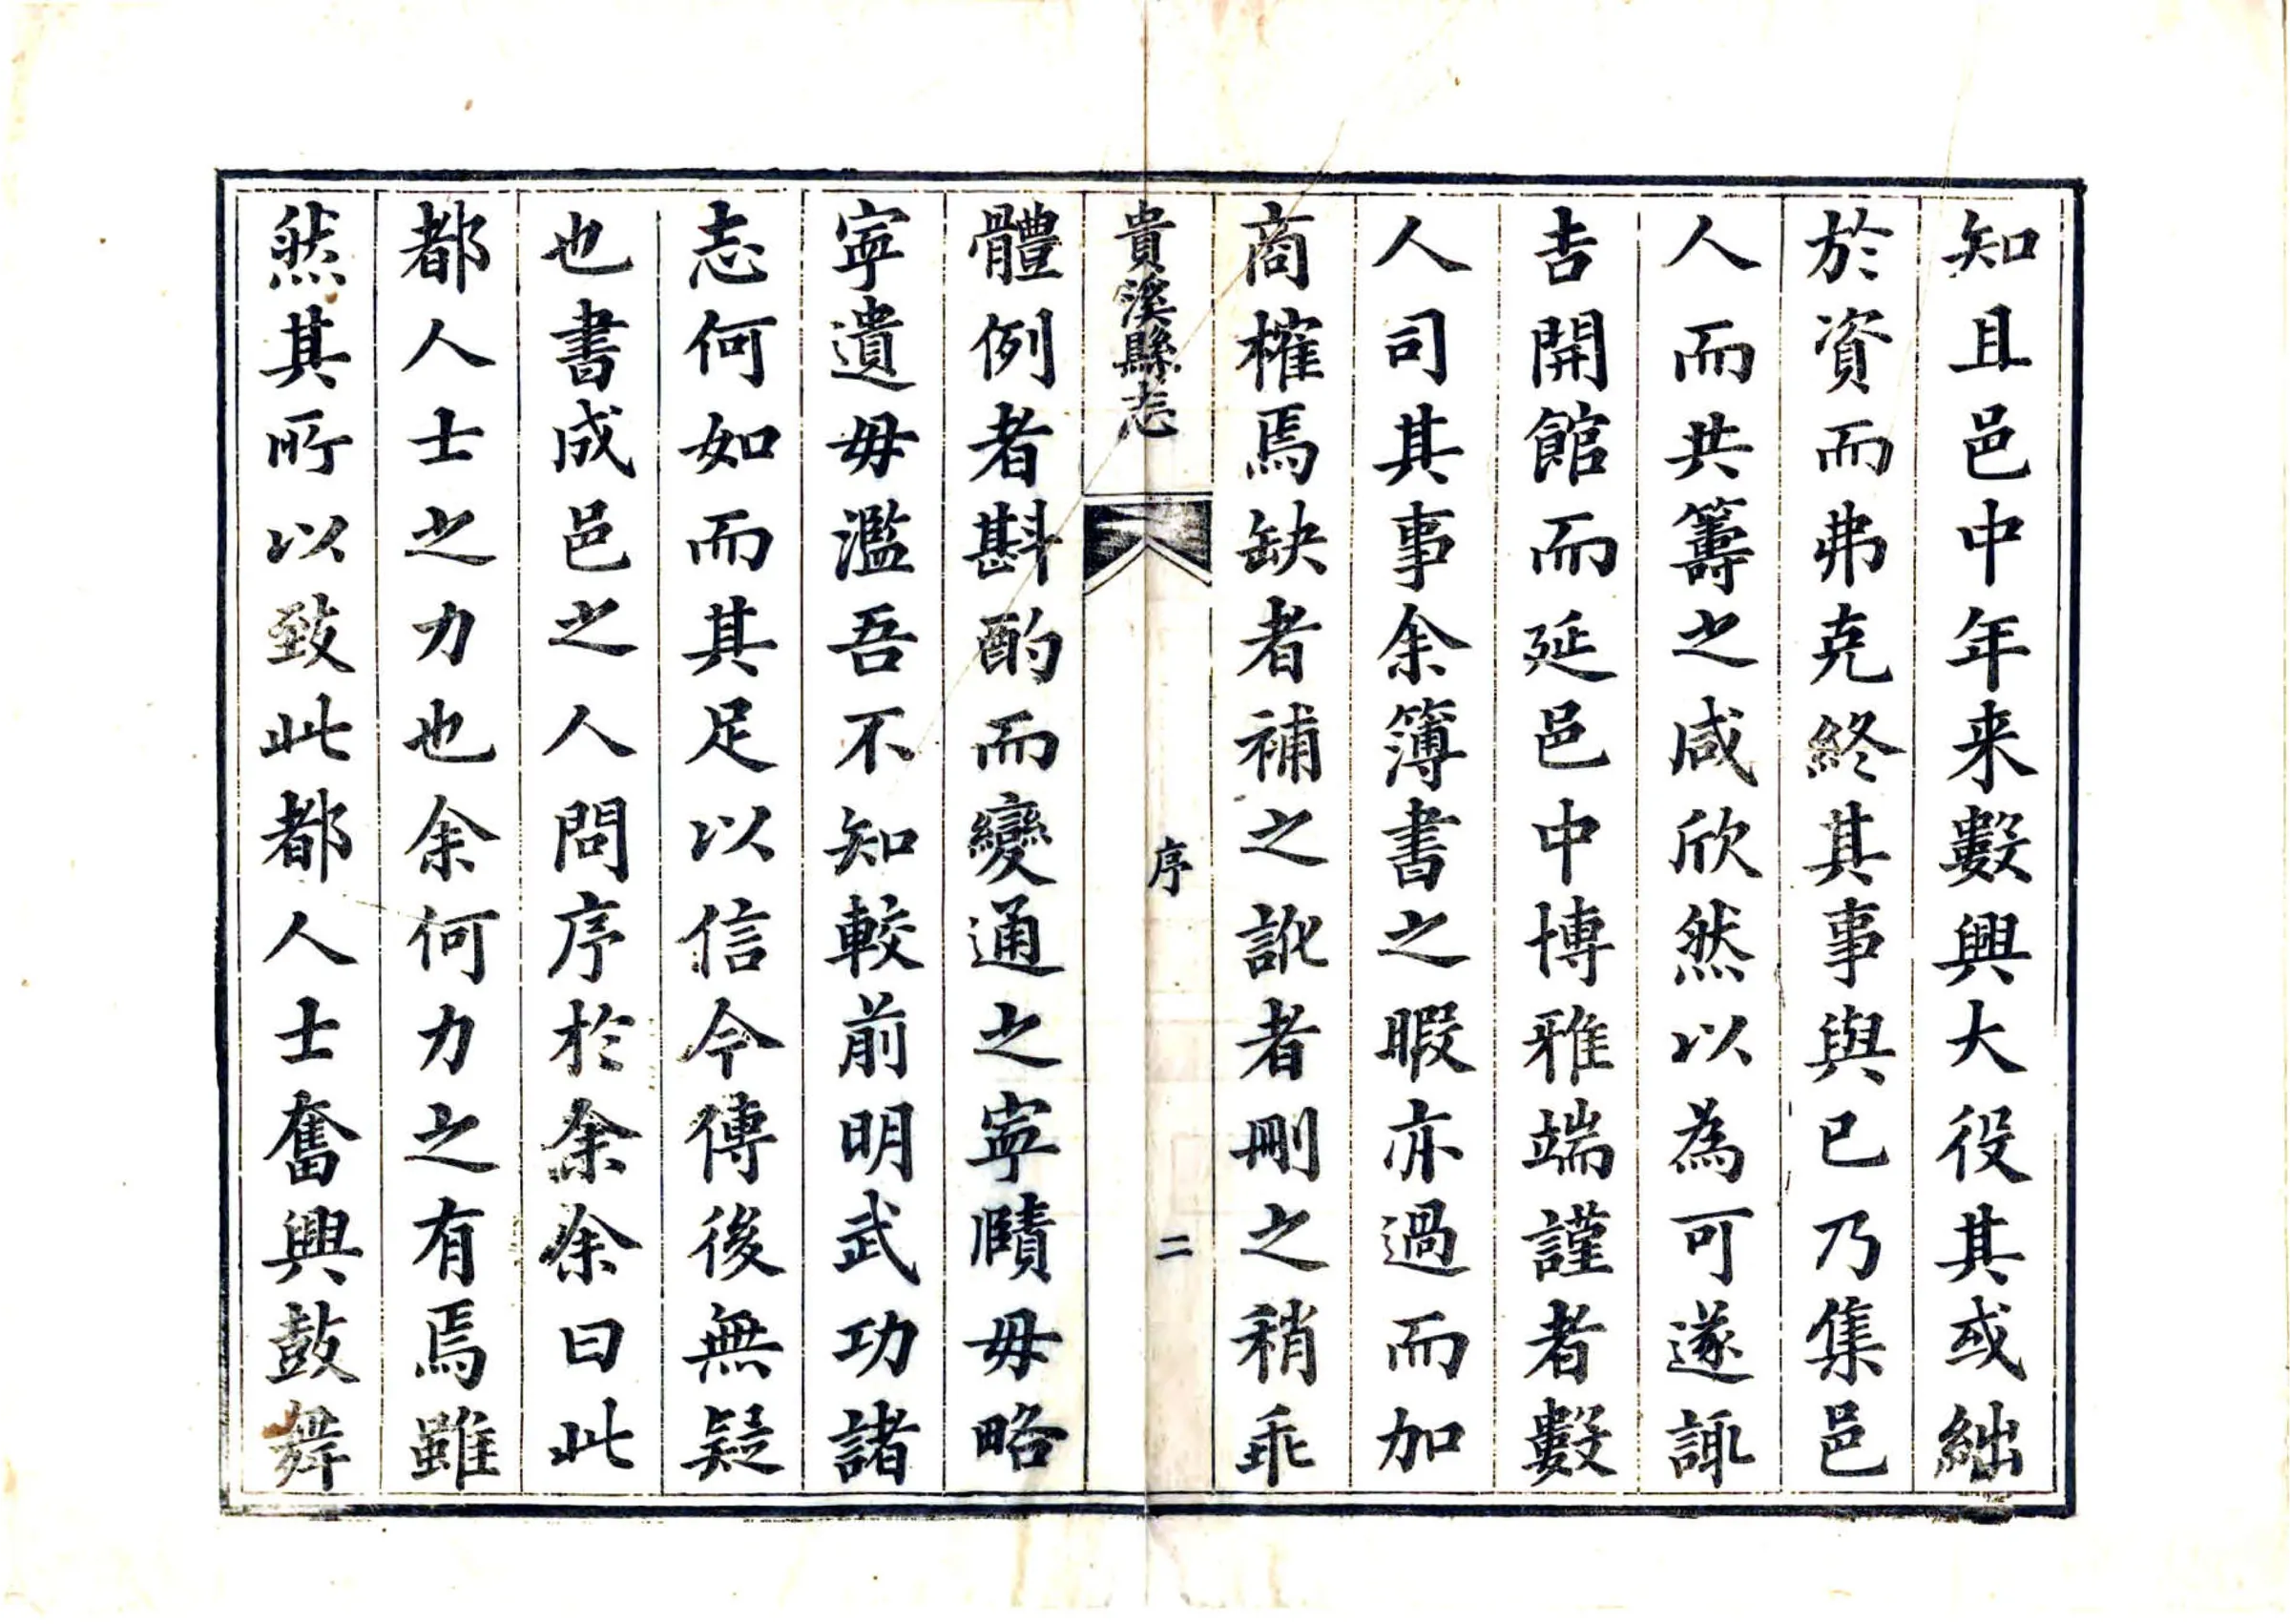 知且邑中年来數興大役其或絀
於資而弗克終其事與已乃集邑
人而共籌之咸欣然以為可遂諏
吉開館而延邑中博雅端謹者數
人司其事余簿書之暇亦過而加
商榷焉缺者補之訛者刪之稍乖
貴溪縣志
序
二
體例者斟酌而變通之寧賾毋略
寧遺毋濫吾不知較前明武功諸
志何如而其足以信今傳後無疑
也書成邑之人問序於余余曰此
都人士之力也余何力之有焉雖
然其所以致此都人士奮興鼓舞